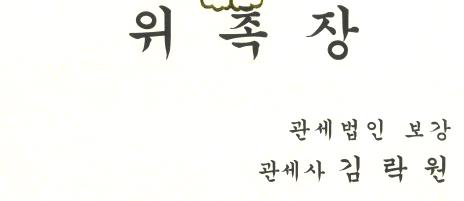 위 촉 장
관세법인 보강
관세사 김 락 원